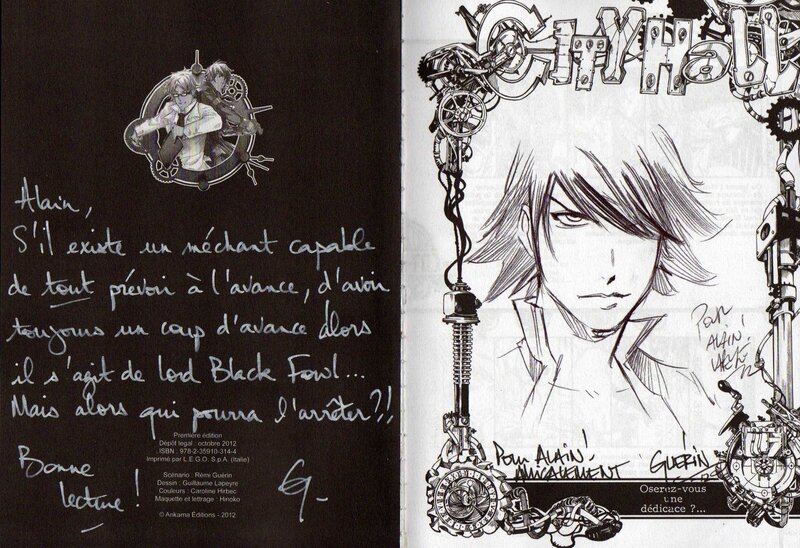 Alain,
S'il existe un méchant capable
de tout prévoir à l'avance, d'avoir
toujours un coup d'avance alors
il s'agit de lord Black Fowl...
Mais alors qui pourra l'arrêter ?!
Première édition
Dépôt légal : octobre 2012
ISBN : 978-2-35910-314-4
Imprimé par L.E.G.O. S.p.A. (Italie)
Bonne
lecture !
Scénario : Rémi Guérin
Dessin : Guillaume Lapeyre
Couleurs : Caroline Hirbec
Maquette et lettrage : Hinoko
© Ankama Éditions - 2012
CITY HALL
Pour
Alain !
Pour Alain !
Amicalement Guérin
Oserez-vous
une
dédicace ?...